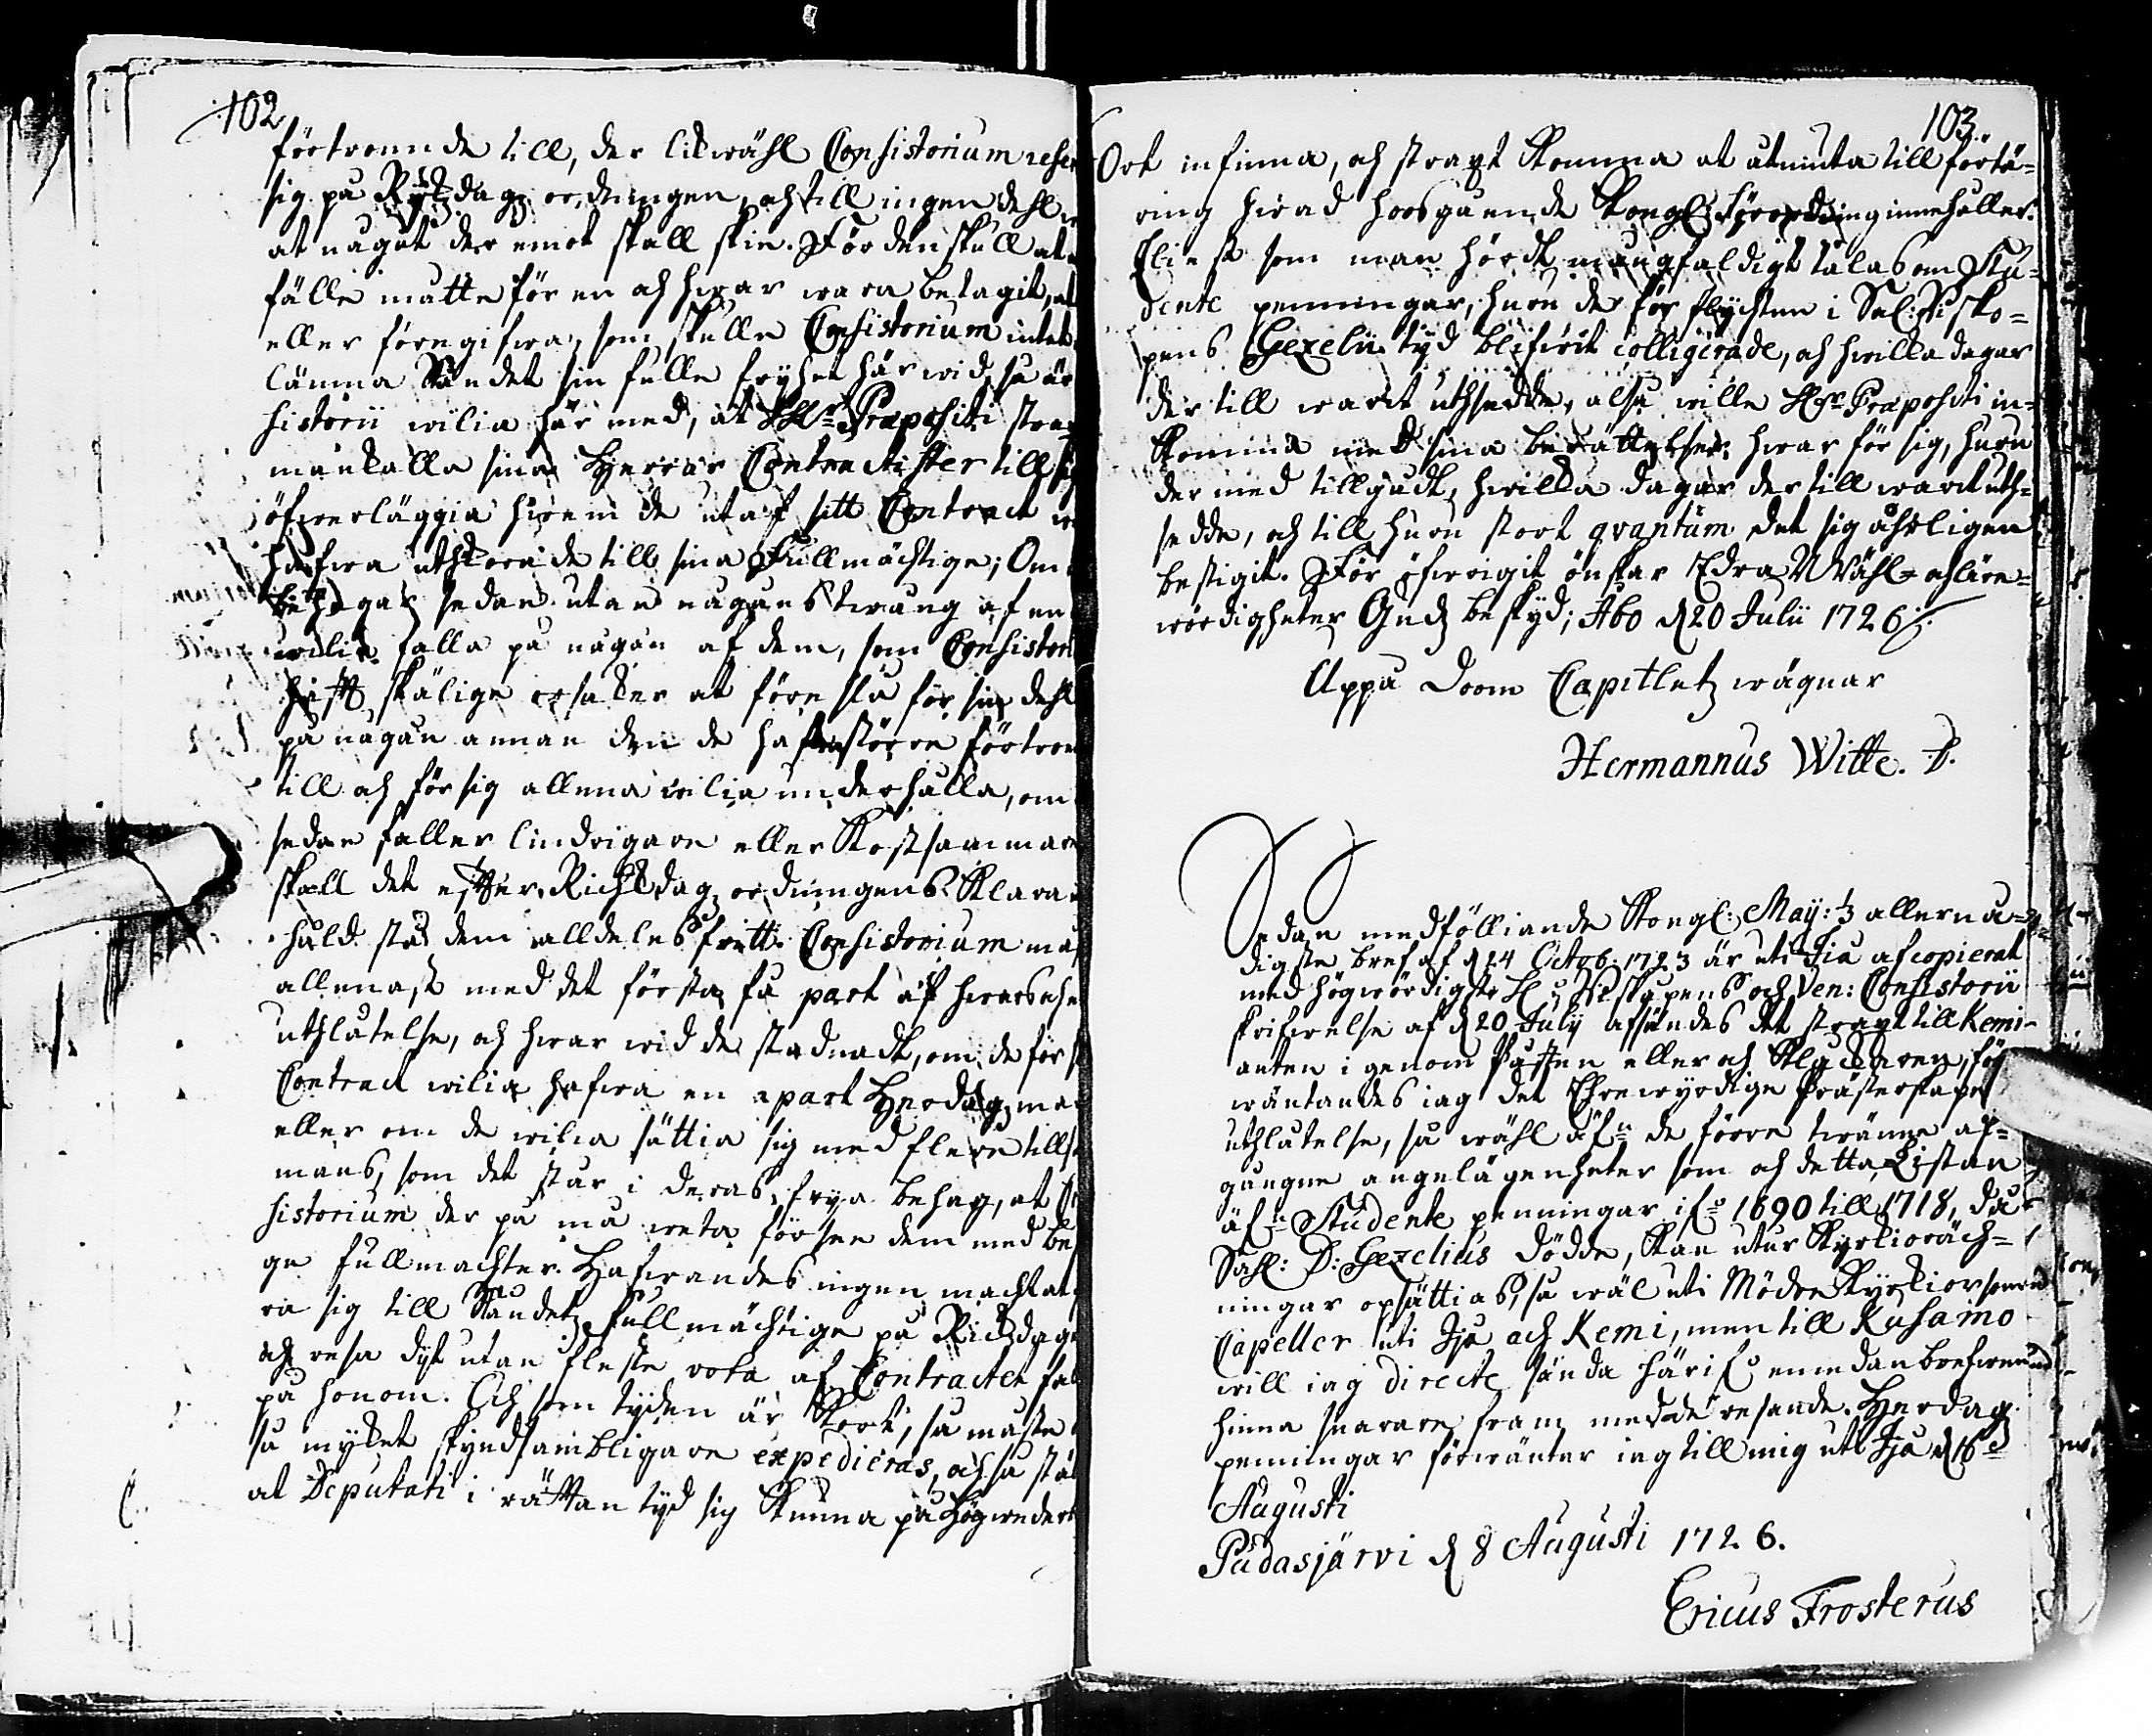 102
förtroende till, der likwähl Consistorium refer
sig på Rijkzdagz ordningen, och till ingen dehl
at något der emot skall skie. För den skull at
fälle måtte för en och hwar wara betagit, at
eller föregifwa, som skulle Consistorium intet
lämna Ståndet sin fulle fryhet här wid, så är
sistorii wilia här med, at H:r Præpositi strax
månkalla sina Herrar Contractister till sig
öfwerläggia hwem de utaf sitt Contract
hafwa uthkorade till sina Fullmächtige; Om
behagar sedan utan någons twång af en
wilia falla på någon af dem, som Consistori
haft skälige orsaker at föreslå för sin dehl
på någon annan den de hafwa större förtroen
till och för sig allena wilia underhålla, om
sedan faller lindrigare eller kostsammare
skall det effter Richsdagz ordningens klara
håld stå dem alldeles fritt. Consistorium må
allenast med det första få part af hwars ehe
uthlåtelse, och hwar wid de stadnadt, om de för
Contract wilia hafwa en apart Herdagzma
eller om de wilia sättia sig med flere tillsa
mans, som det står i deras frya behag, at Con
sistorium der på må weta förse dem med be
ge fullmachter. Hafwandes ingen macht at
ra sig till Ståndetz Fullmächtige på Richsdage
och resa dyt utan fleste vota af Contractet fal
på honom. Och som tyden är kort, så måste
så myket skyndsambligare expedieras, och så stä
at Deputati i rättan tyd sig kunna på högwederb
103.
Ort infinna, och straxt komma at åtniuta till förtä-
ring hwad hoosgående Kongl: Förordning innehåller.
Elliest som man hördt mångfaldigt talas om Stu-
dente penningar, huru de för flychten i Sal: Bisko-
pens Gezelii tyd blifwit colligerade, och hwilka dagar
der till warit uthsedde, alså wille H:r Præpositi in-
komma med sina berättelser hwar för sig, huru
der med tillgådt, hwilka dagar der till warit uth-
sedde, och till huru stort qvantum det sig åhrligen
bestigit. För öfwrigit önskar Edra Wähl- och läre-
wördigheter Gudz beskyd; Åbo d 20 Julii 1726.
Uppå Doom Capitletz wägnar
Hermannus Witte. D.
Sedan medfölliande Kongl: May:tz allernå-
digste bref af d 24 Octob. 1723 är uti Ijå afcopierat
med högwördigste H: Biskopens och Ven: Consistorii
skrifwelse af d 20 July afsändes det straxt till Kemi-
anten igenom Påsten eller och Klackaren, för
wäntandes iag det Ehrewyrdige Prästerskapet
uthlåtelse, så wähl öf:r de förre twänne af-
gångne angelägenheter som och detta, Listan
öf:r Studente penningar if:r 1690 till 1718, då
Sahl: D: Gezelius dödde, kan utur Kyrkioräch-
ningar opsättias, så wäl uti Moder Kyrkior som
Capeller uti Ijå och Kemi, men till Kusamo
will iag directe sända härif:r emedan brefwen
hinna snarare fram med de resande. Herdagz
penningar förwäntar iag till mig uti Ijå d 16
Augusti
Pudasjärvi d 8 Augusti 1726.
Ericus Frosterus